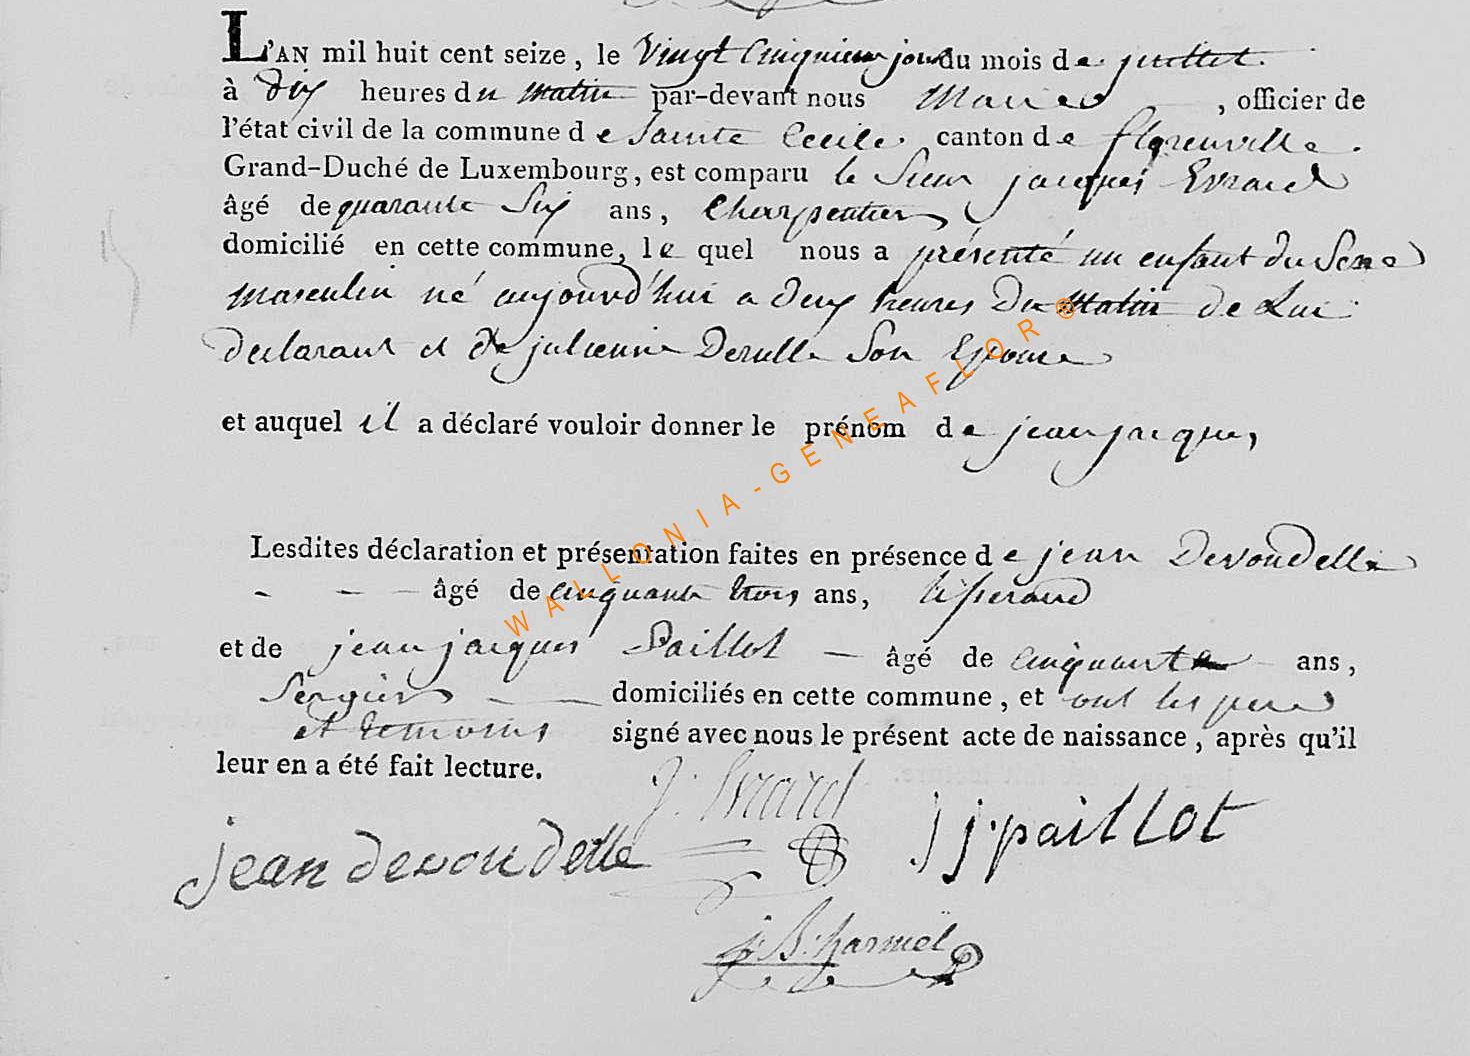 L'AN mil huit cent seize, le Vingt Cinquieme jour du mois de juillet.
à dix heures du matin par-devant nous Maire, officier de
l'état civil de la commune de Sainte Cecile. canton de florenville.
Grand-Duché de Luxembourg, est comparu le Sieur jacques Evrard
âgé de quarante Six ans, Charpentier
domicilié en cette commune, le quel nous a présenté un enfant du Sexe
masculin né aujourd'hui a deux heures Du Matin de Lui
declarant et de julienne Derulle Son Epouse
et auquel il a déclaré vouloir donner le prénom de jean jacques,
Lesdites déclaration et présentation faites en présence de jean Devoudelle
- - - âgé de cinquante trois ans, tisserand
et de jean jacques Paillot - âgé de cinquante - ans,
Sergier domiciliés en cette commune, et ont les pere
et temoins signé avec nous le présent acte de naissance, après qu'il
leur en a été fait lecture.
J. Evrard
jean devoudelle
j j. paillot
j. B. harmel
WALLONIA-GENEAFLOR®